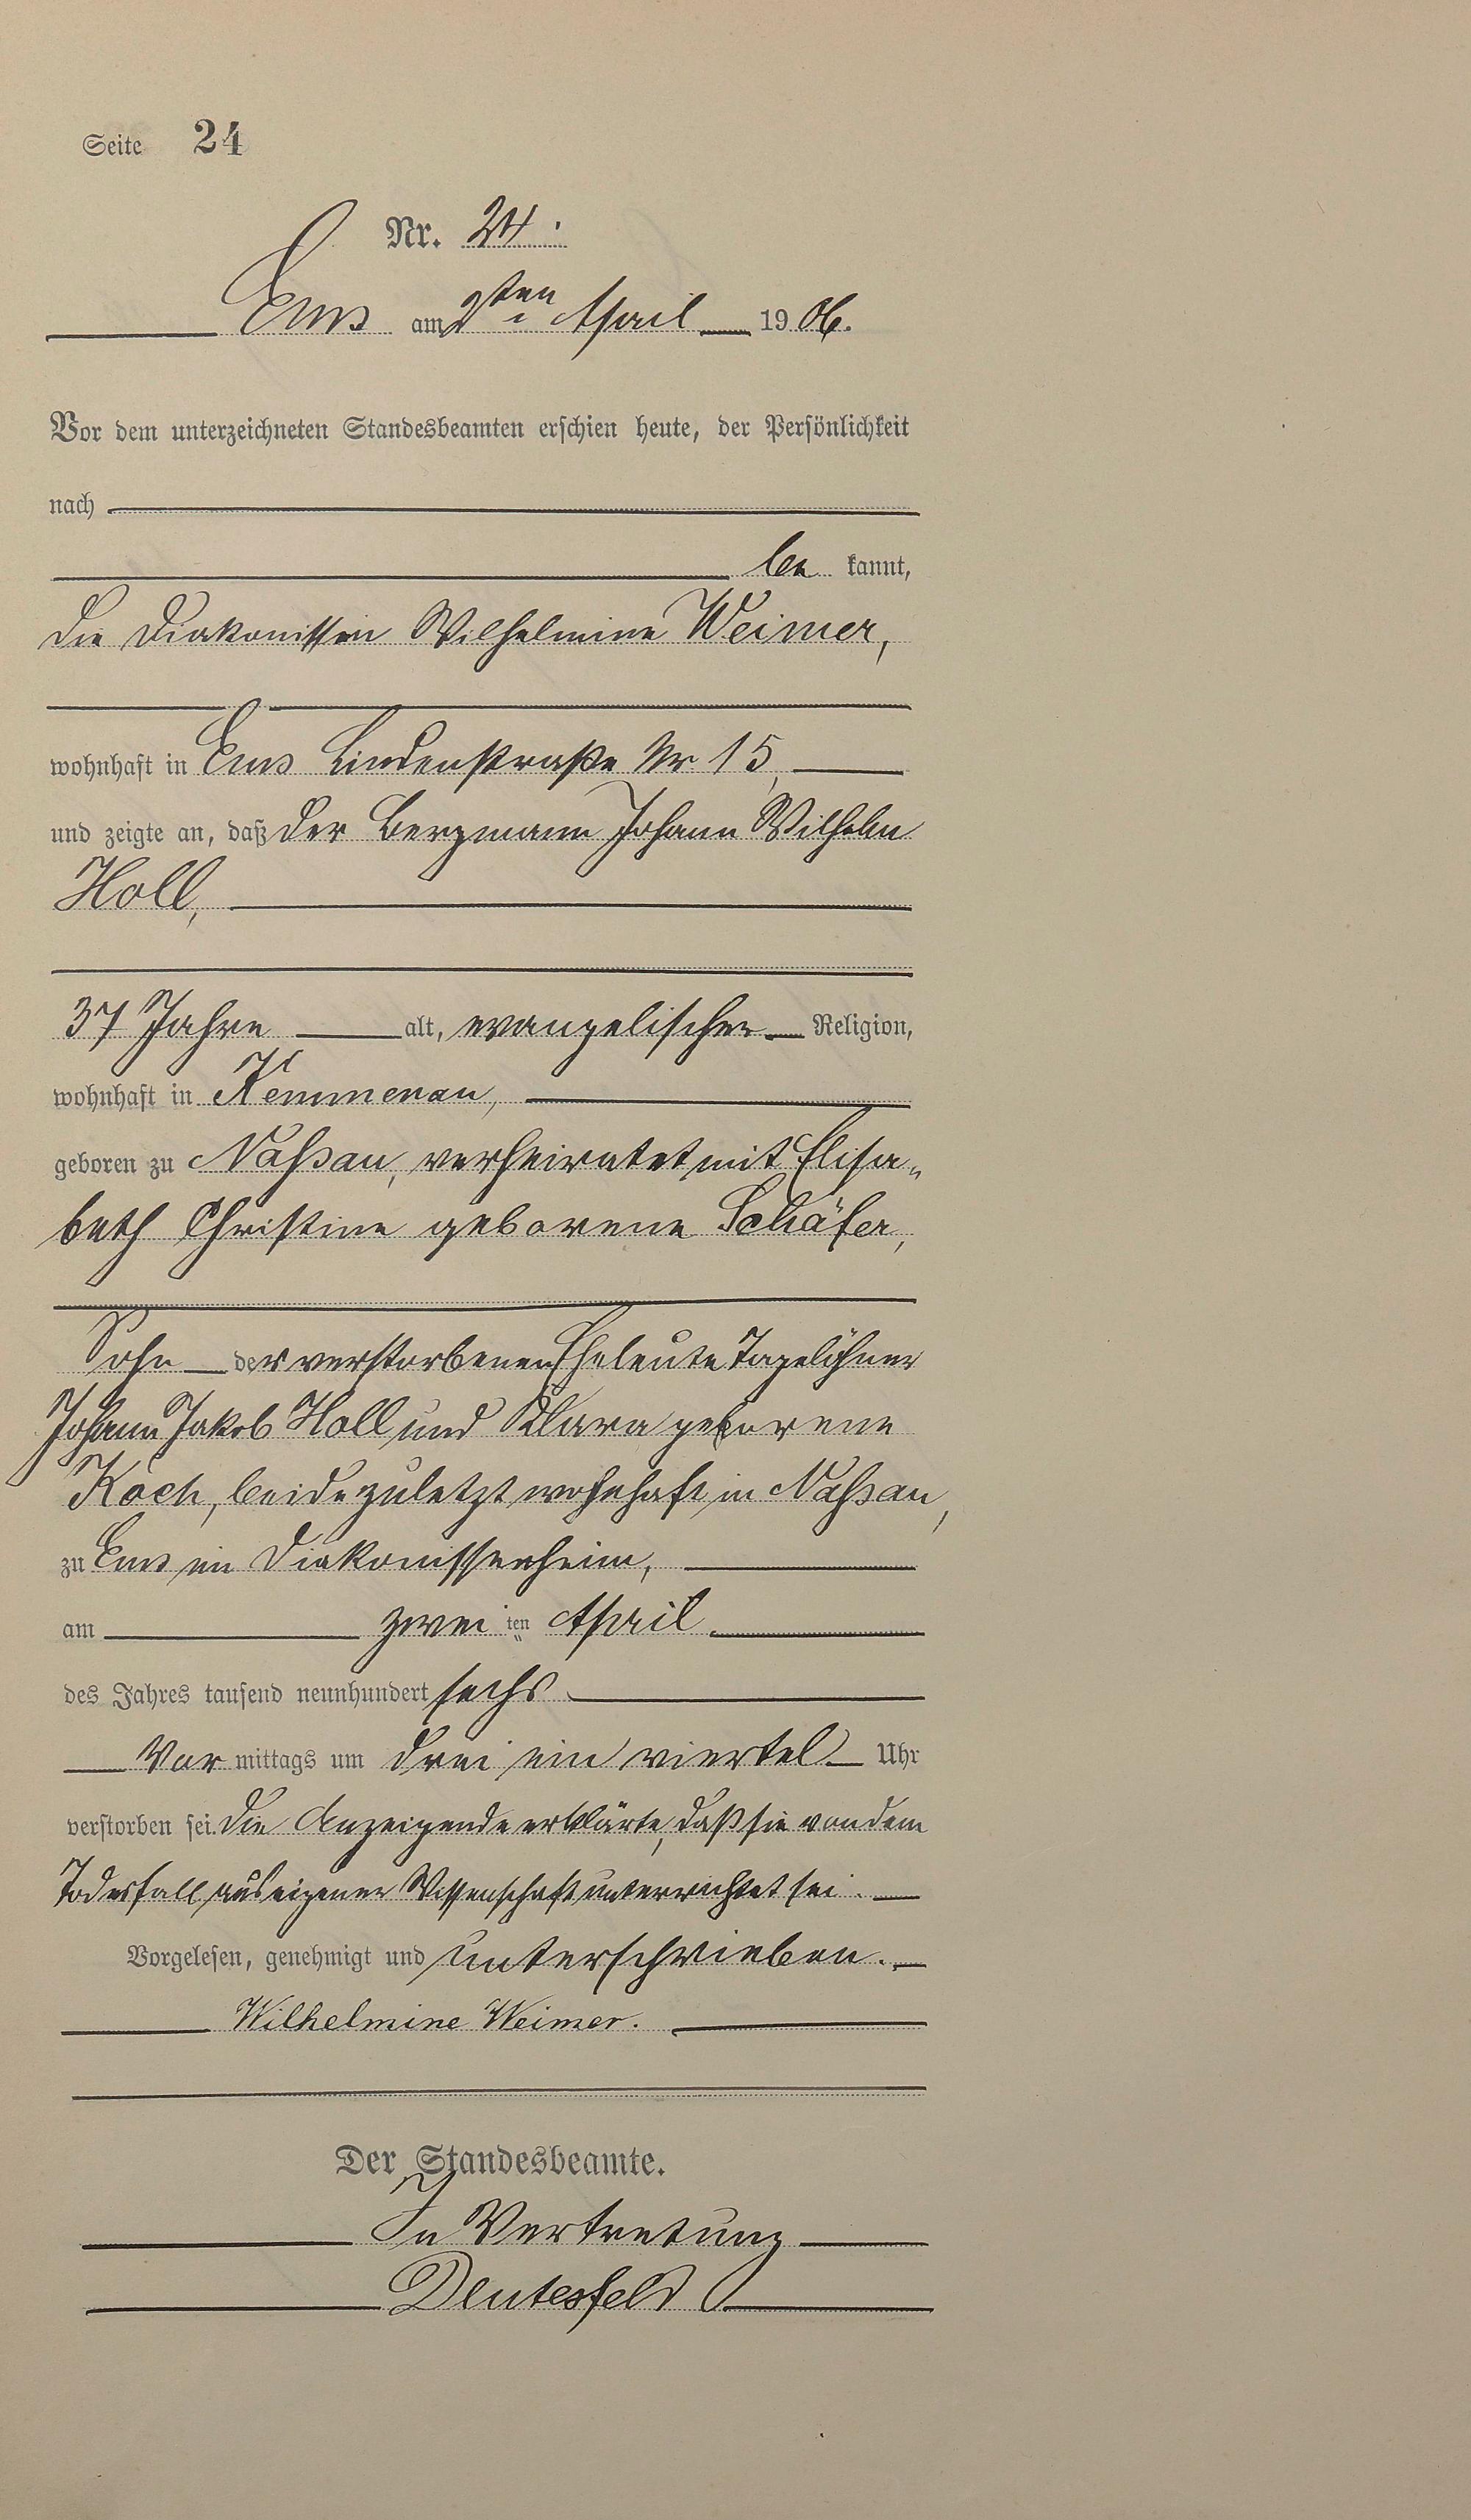 Seite 24
Nr. 24.
Ems am 2ten April 1906.
Vor dem unterzeichneten Standesbeamten erschien heute, der Persönlichkeit
nach
be kannt,
die Diakonissin Wilhelmine Weimer,
wohnhaft in Ems Lindenstraße Nr 15,
und zeigte an, daß der Bergmann Johann Wilhelm
Holl,
37 Jahre alt, evangelischer Religion,
wohnhaft in Kemmenau,
geboren zu Naßau, verheiratet mit Elisa„
beth Christine geborene Schäfer,
Sohn der verstorbenen Eheleute Tagelöhner
Johann Jakob Holl und Klara geborene
Koch, beide zuletzt wohnhaft in Naßau,
zu Ems im Diakonissenheim,
am zweiten April
des Jahres tausend neunhundert sechs
Vor mittags um drei ein viertel Uhr
verstorben sei. Die Anzeigende erklärte, daß sie von dem
Todesfall aus eigener Wissenschaft unterrichtet sei.
Vorgelesen, genehmigt und unterschrieben.
Wilhelmine Weimer.
Der Standesbeamte.
In Vertretung